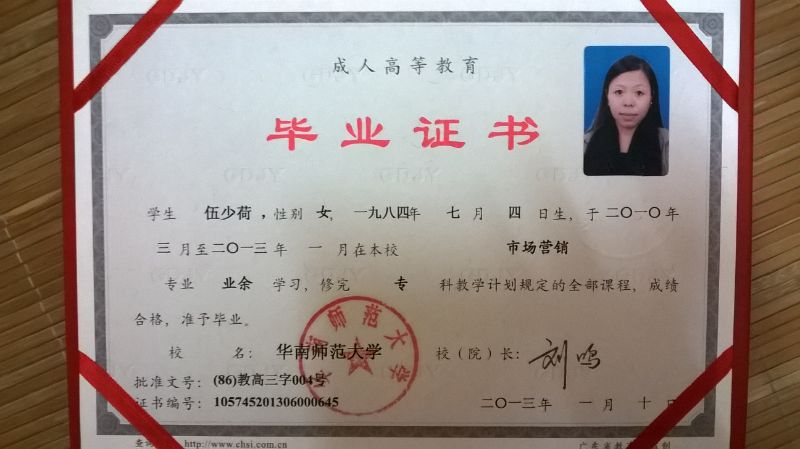 成人高等教育
毕业证书
学生 伍少荷 ，性别 女，一九八四年 七 月 四 日生，于二〇一〇年
三 月至二〇一三年 一 月在本校 市场营销
专业 业余 学习，修完 专 科教学计划规定的全部课程，成绩
合格，准予毕业。
校 名： 华南师范大学 校（院）长： 刘鸣
批准文号： (86)教高三字004号
证书编号： 105745201306000645 二〇一三年 一 月 十 日
查询 http://www.chsi.com.cn 广东省教 制
华南师范大学